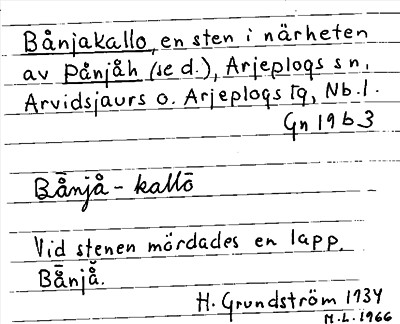 Bånjakallo, en sten i närheten
av Pånjåh (se d.), Arjeplogs sn,
Arvidsjaurs o. Arjeplogs tg, Nb.l.
Gn 19 b 3
Bā̊njå – kallō
Vid stenen mördades en lapp,
Bā̊njå̆.
H. Grundström 1934
M.L. 1966